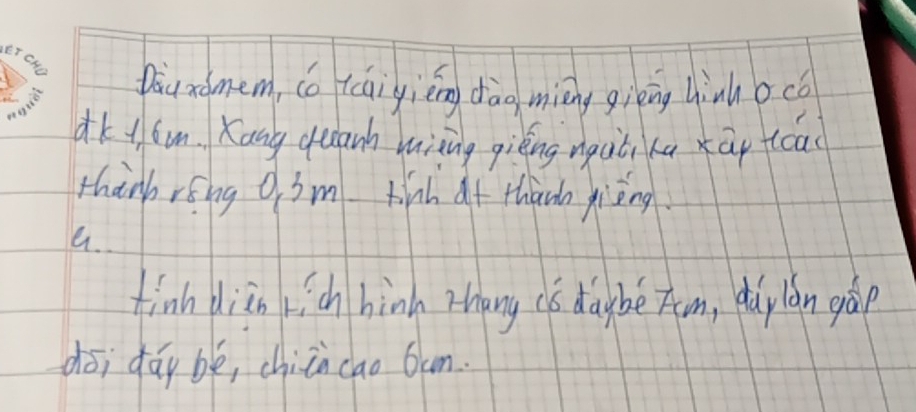 ẾT CHỮ
người
Đầu xóm em, có 1 cái giếng đào, miệng giếng hình o có
đk 1,6m. Xang quanh miệng giếng người ta xây 1 cái
thành rộng 0,3m tính dt thành giếng.
4..
tính diện tích hình thang có đáy bé 7cm, đáy lớn gấp
đôi đáy bé, chiều cao 6cm.